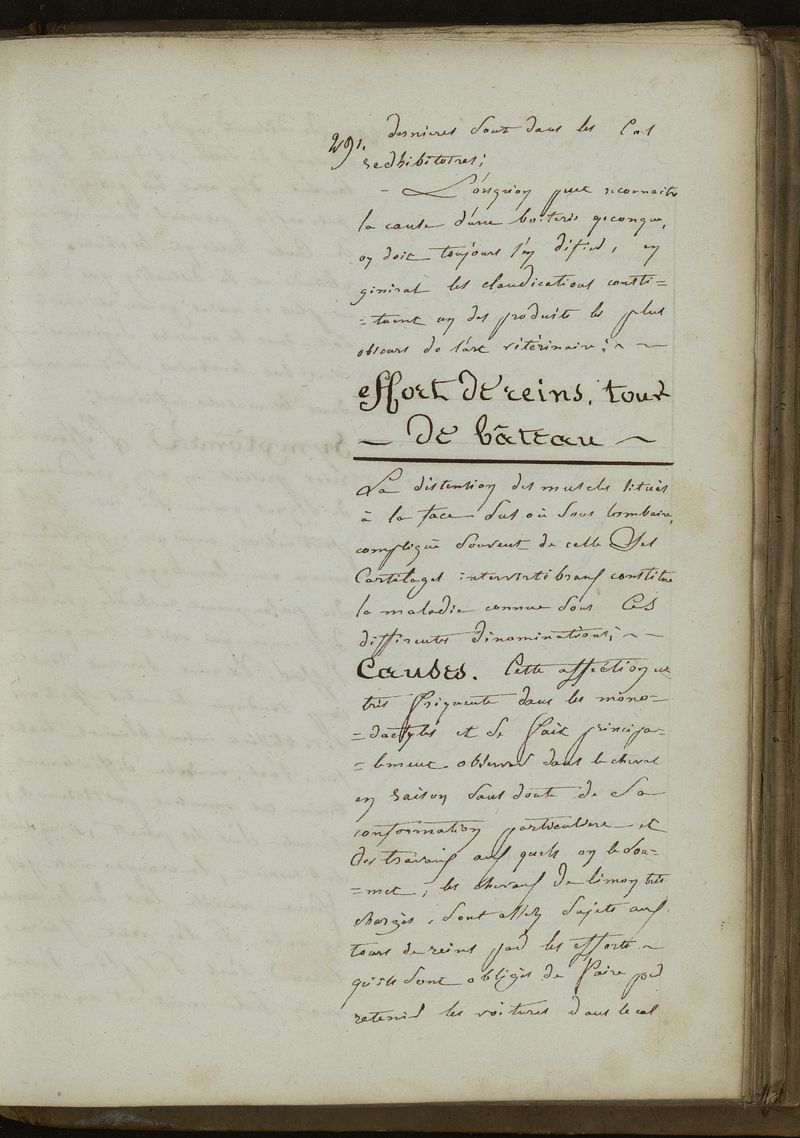 291.
dernieres sont dans les Cas
redhibitoires;
- Lorsqu'on peut reconnaitre
la cause d'une boiterie qeconque,
on doit toujours s'en difier, en
géniral les claudications consti=
=tuent un des produits les plus
obscurs de l'art vétérinaire; ~ ~
effort de reins, tour
~ de bâteau ~
La distention des muscles situés
à la face sus ou sous lombaire,
compliquée souvent de celle Des
Cartilages intervertibraux constitue
la maladie connue sous Ces
differentes dinominations; ~ ~
Causes. Cette affection est
très friquente dans les mono=
=dactyles et se fait principa=
=lement observer dans le cheval
en raison sans doute de Sa
conformation particuliere et
des travaux aux quels on le sou=
=met, les chevaux de limon très
chargés, sont assez sujets aux
tours de reins par les efforts ~
qu'ils sont obligés de faire pour
retenir les voitures dans le cas